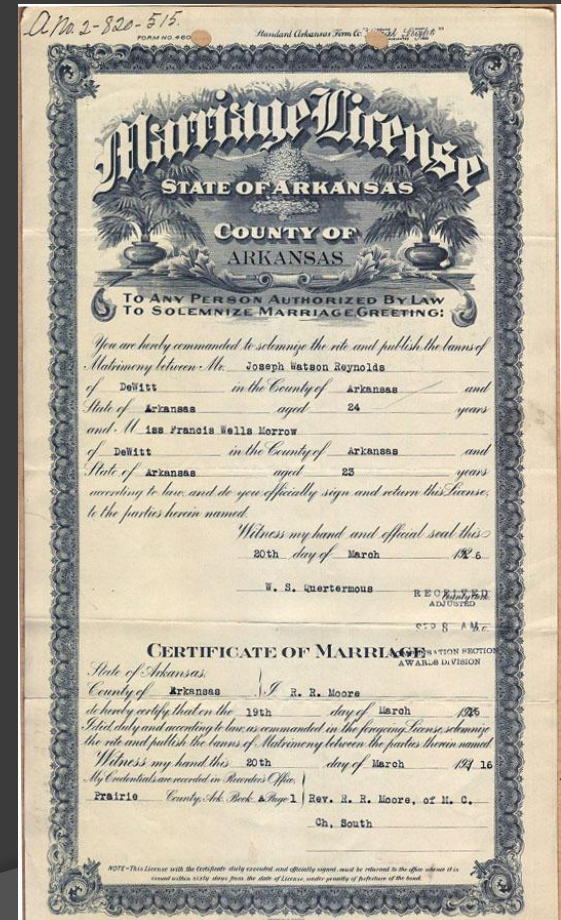 A No. 2-820-515.
FORM NO. 460
Standard Arkansas Form Co.
Marriage License
STATE OF ARKANSAS
COUNTY OF
ARKANSAS
TO ANY PERSON AUTHORIZED BY LAW
TO SOLEMNIZE MARRIAGE, GREETING:
You are hereby commanded to solemnize the rite and publish the banns of
Matrimony between Mr. Joseph Watson Reynolds
of DeWitt in the County of Arkansas and
State of Arkansas aged 24 years
and M iss Francis Wells Morrow
of DeWitt in the County of Arkansas and
State of Arkansas aged 23 years
according to law, and do you officially sign and return this License,
to the parties herein named.
Witness my hand and official seal this
20th day of March
W. S. Quertermous
RECEIVED
County Clerk
ADJUSTED
8 AM
CERTIFICATE OF MARRIAGE
SECTION
AWARDS DIVISION
State of Arkansas,
County of Arkansas } I R. R. Moore
do hereby certify, that on the 19th day of March
I did, duly and according to law, as commanded in the foregoing License, solemnize
the rite and publish the banns of Matrimony between the parties therein named.
Witness my hand this 20th day of March 16
My Credentials are recorded in Recorder's Office,
Prairie County, Ark. Book A Page 1 } Rev. R. R. Moore, of M. C.
Ch, South
NOTE-This License with the Certificate duly executed and officially signed, must be returned to the office whence it is
issued within sixty days from the date of License, under penalty of forfeiture of the bond.